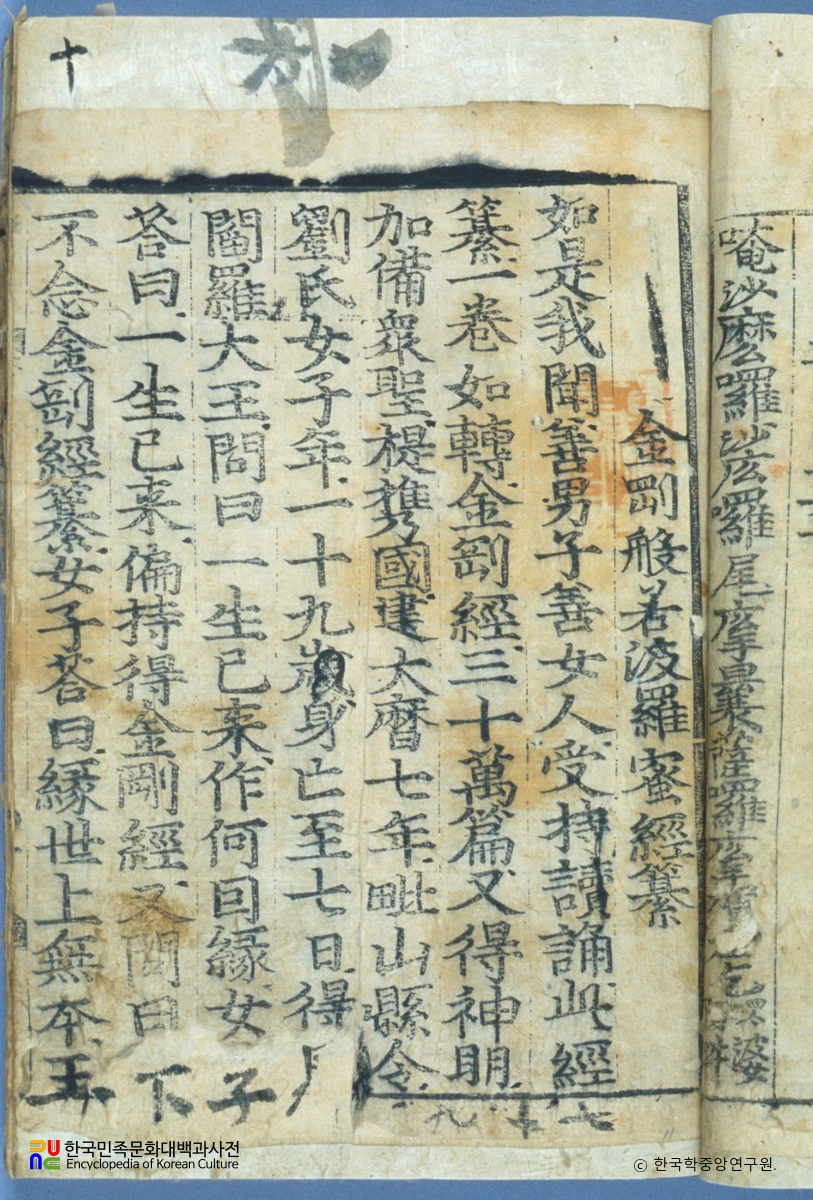 唵沙麽囉沙庅囉尾
金剛般若波羅蜜經纂
如是我聞善男子善女人受持讀誦此經
纂一卷如轉金剛經三十萬篇又得神明
加備衆聖提携國建大曆七年毗山縣令
劉氏女子年一十九歲身亡至七日得
閻羅大王問曰一生已来作何因緣女子
荅曰一生已来偏持得金剛經又問曰下
不念金剛經纂女子荅曰緣世上無本王
十
七
十
九
한국민족문화대백과사전
Encyclopedia of Korean Culture
© 한국학중앙연구원.